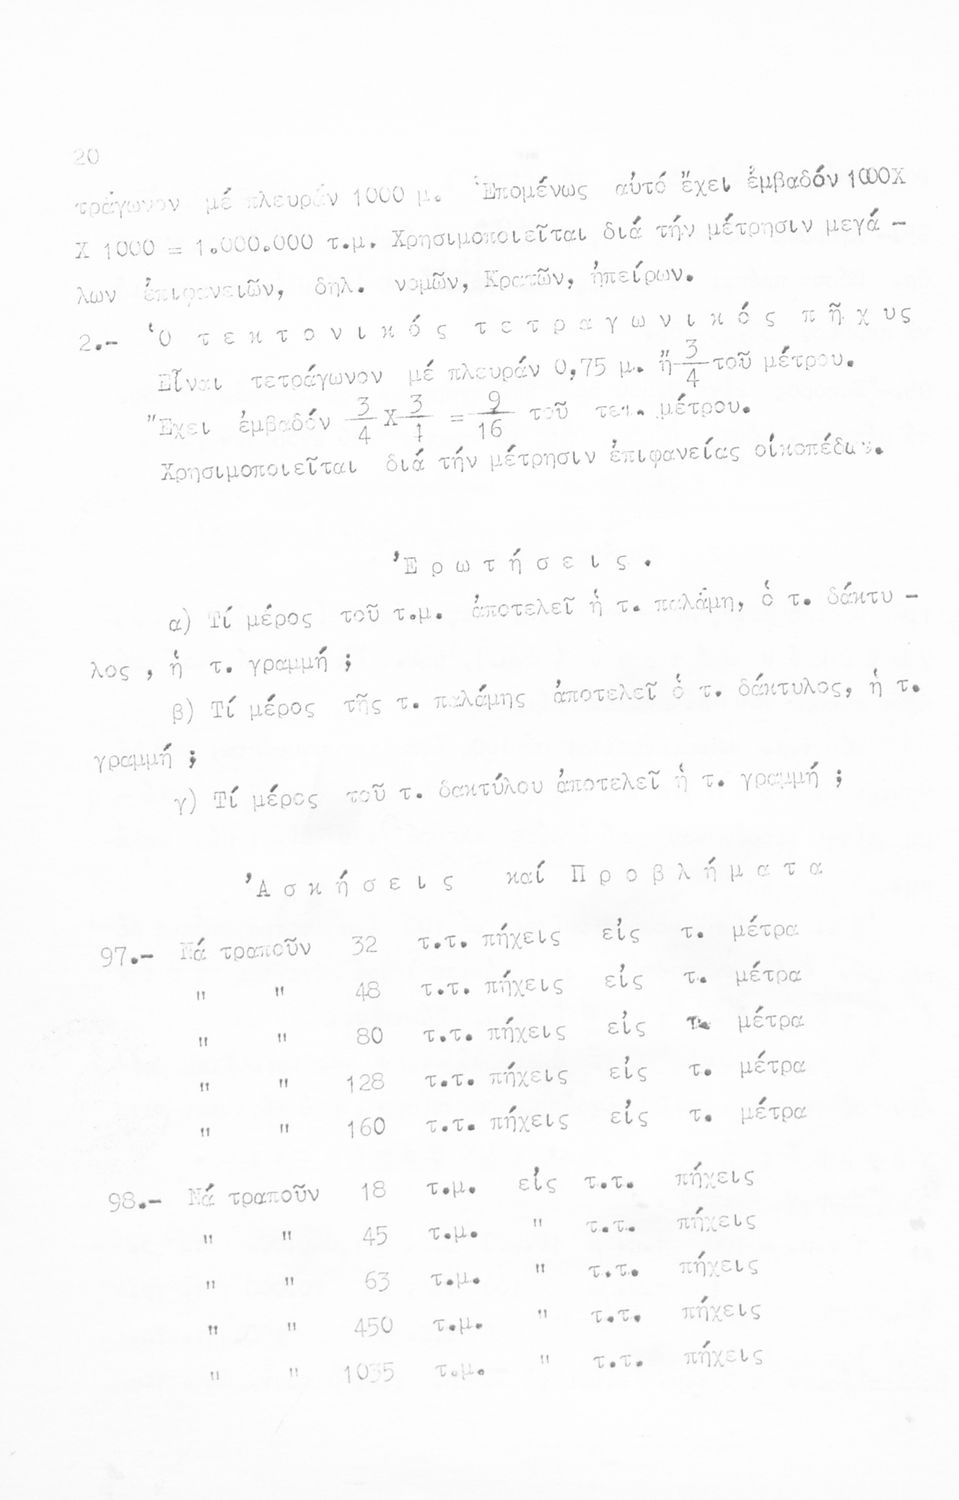 20
τράγωνον μέ πλευράν 1000 μ. Ἑπομένως αὐτό ἔχει ἐμβαδόν 1000Χ
Χ 1000 = 1.000.000 τ.μ. Χρησιμοποιεῖται διά τήν μέτρησιν μεγά -
λων ἐπιφανειῶν, δηλ. νομῶν, Κρατῶν, ἠπείρων.
2.- Ὁ τ ε κ τ ο ν ι κ ό ς τ ε τ ρ α γ ω ν ι κ ό ς π ῆ χ υ ς
Εἶναι τετράγωνον μέ πλευράν 0,75 μ. ἤ 3/4 τοῦ μέτρου.
Ἔχει ἐμβαδόν 3/4 Χ 3/4 = 9/16 τοῦ τετ. μέτρου.
Χρησιμοποιεῖται διά τήν μέτρησιν ἐπιφανείας οἰκοπέδων.
Ἐ ρ ω τ ή σ ε ι ς .
α) Τί μέρος τοῦ τ.μ. ἀποτελεῖ ἡ τ. παλάμη, ὁ τ. δάκτυ -
λος , ἡ τ. γραμμή ;
β) Τί μέρος τῆς τ. παλάμης ἀποτελεῖ ὁ τ. δάκτυλος, ἡ τ.
γραμμή ;
γ) Τί μέρος τοῦ τ. δακτύλου ἀποτελεῖ ἡ τ. γραμμή ;
Ἀ σ κ ή σ ε ι ς καί Π ρ ο β λ ή μ α τ α
97.- Νά τραποῦν 32 τ.τ. πήχεις εἰς τ. μέτρα
" " 48 τ.τ. πήχεις εἰς τ. μέτρα
" " 80 τ.τ. πήχεις εἰς τ. μέτρα
" " 128 τ.τ. πήχεις εἰς τ. μέτρα
" " 160 τ.τ. πήχεις εἰς τ. μέτρα
98.- Νά τραποῦν 18 τ.μ. εἰς τ.τ. πήχεις
" " 45 τ.μ. " τ.τ. πήχεις
" " 63 τ.μ. " τ.τ. πήχεις
" " 450 τ.μ. " τ.τ. πήχεις
" " 1035 τ.μ. " τ.τ. πήχεις